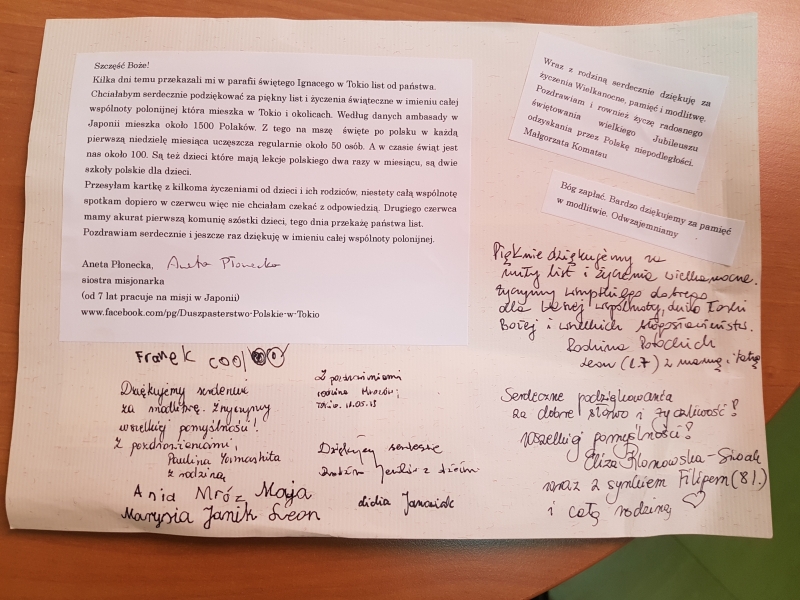 Szczęść Boże!
Kilka dni temu przekazali mi w parafii świętego Ignacego w Tokio list od państwa.
Chciałabym serdecznie podziękować za piękny list i życzenia świąteczne w imieniu całej
wspólnoty polonijnej która mieszka w Tokio i okolicach. Według danych ambasady w
Japonii mieszka około 1500 Polaków. Z tego na mszę święte po polsku w każdą
pierwszą niedzielę miesiąca uczęszcza regularnie około 50 osób. A w czasie świąt jest
nas około 100. Są też dzieci które mają lekcje polskiego dwa razy w miesiącu, są dwie
szkoły polskie dla dzieci.
Przesyłam kartkę z kilkoma życzeniami od dzieci i ich rodziców, niestety całą wspólnotę
spotkam dopiero w czerwcu więc nie chciałam czekać z odpowiedzią. Drugiego czerwca
mamy akurat pierwszą komunię szóstki dzieci, tego dnia przekażę państwa list.
Pozdrawiam serdecznie i jeszcze raz dziękuję w imieniu całej wspólnoty polonijnej.
Aneta Płonecka, Aneta Płonecka
siostra misjonarka
(od 7 lat pracuje na misji w Japonii)
www.facebook.com/pg/Duszpasterstwo-Polskie-w-Tokio
Wraz z rodziną serdecznie dziękuję za
życzenia Wielkanocne, pamięć i modlitwę.
Pozdrawiam i rownież życzę radosnego
świętowania wielkiego Jubileuszu
odzyskania przez Polskę niepodległości.
Małgorzata Komatsu
Bóg zapłać. Bardzo dziękujemy za pamięć
w modlitwie. Odwzajemniamy
Pięknie dziękujemy za
miły list i życzenia wielkanocne.
Życzymy wszystkiego dobrego
dla Waszej wspólnoty, dużo Łaski
Bożej i wszelkich błogosławieństw.
Rodzina Potockich
Leon (l.7) z mamą i tatą
Franek
Dziękujemy serdecznie
za modlitwę. Życzymy
wszelkiej pomyślności!
Z pozdrowieniami,
Paulina
z rodziną
Z pozdrowieniami
rodzina
Dziękujemy serdecznie
Lidia Janusiak
Ania Mróz Maja
Marysia Janik Leon
Serdeczne podziękowania
za dobre słowo i życzliwość!
Wszelkiej pomyślności!
Eliza Klonowska-
wraz z synkiem Filipem (8 l.)
i całą rodziną